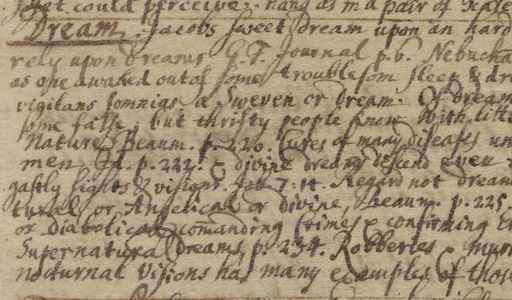 that could perceive. hang as in a pair of Scale
Dream. Jacobs sweet dream upon an hard
rely upon dreams. G.F. Journal p.6. Nebucha
as one awaked out of som troublesom sleep & dre
vigilans somnias a Sweven or dream. Of dream
som false, but thrifty people know with litt
Nature Beaum. p. 220. Cures of many diseases un
men. Id. p. 222. divine dreams descend even t
gastly sights & visions. Job 7.14. Regard not dream
tural, or Angelical or divine, Beaum. p. 225.
or diabolical comanding Crimes & confirming E
Supernatural dreams p. 234. Robberies & Murr
nocturnal visions has many examples of those